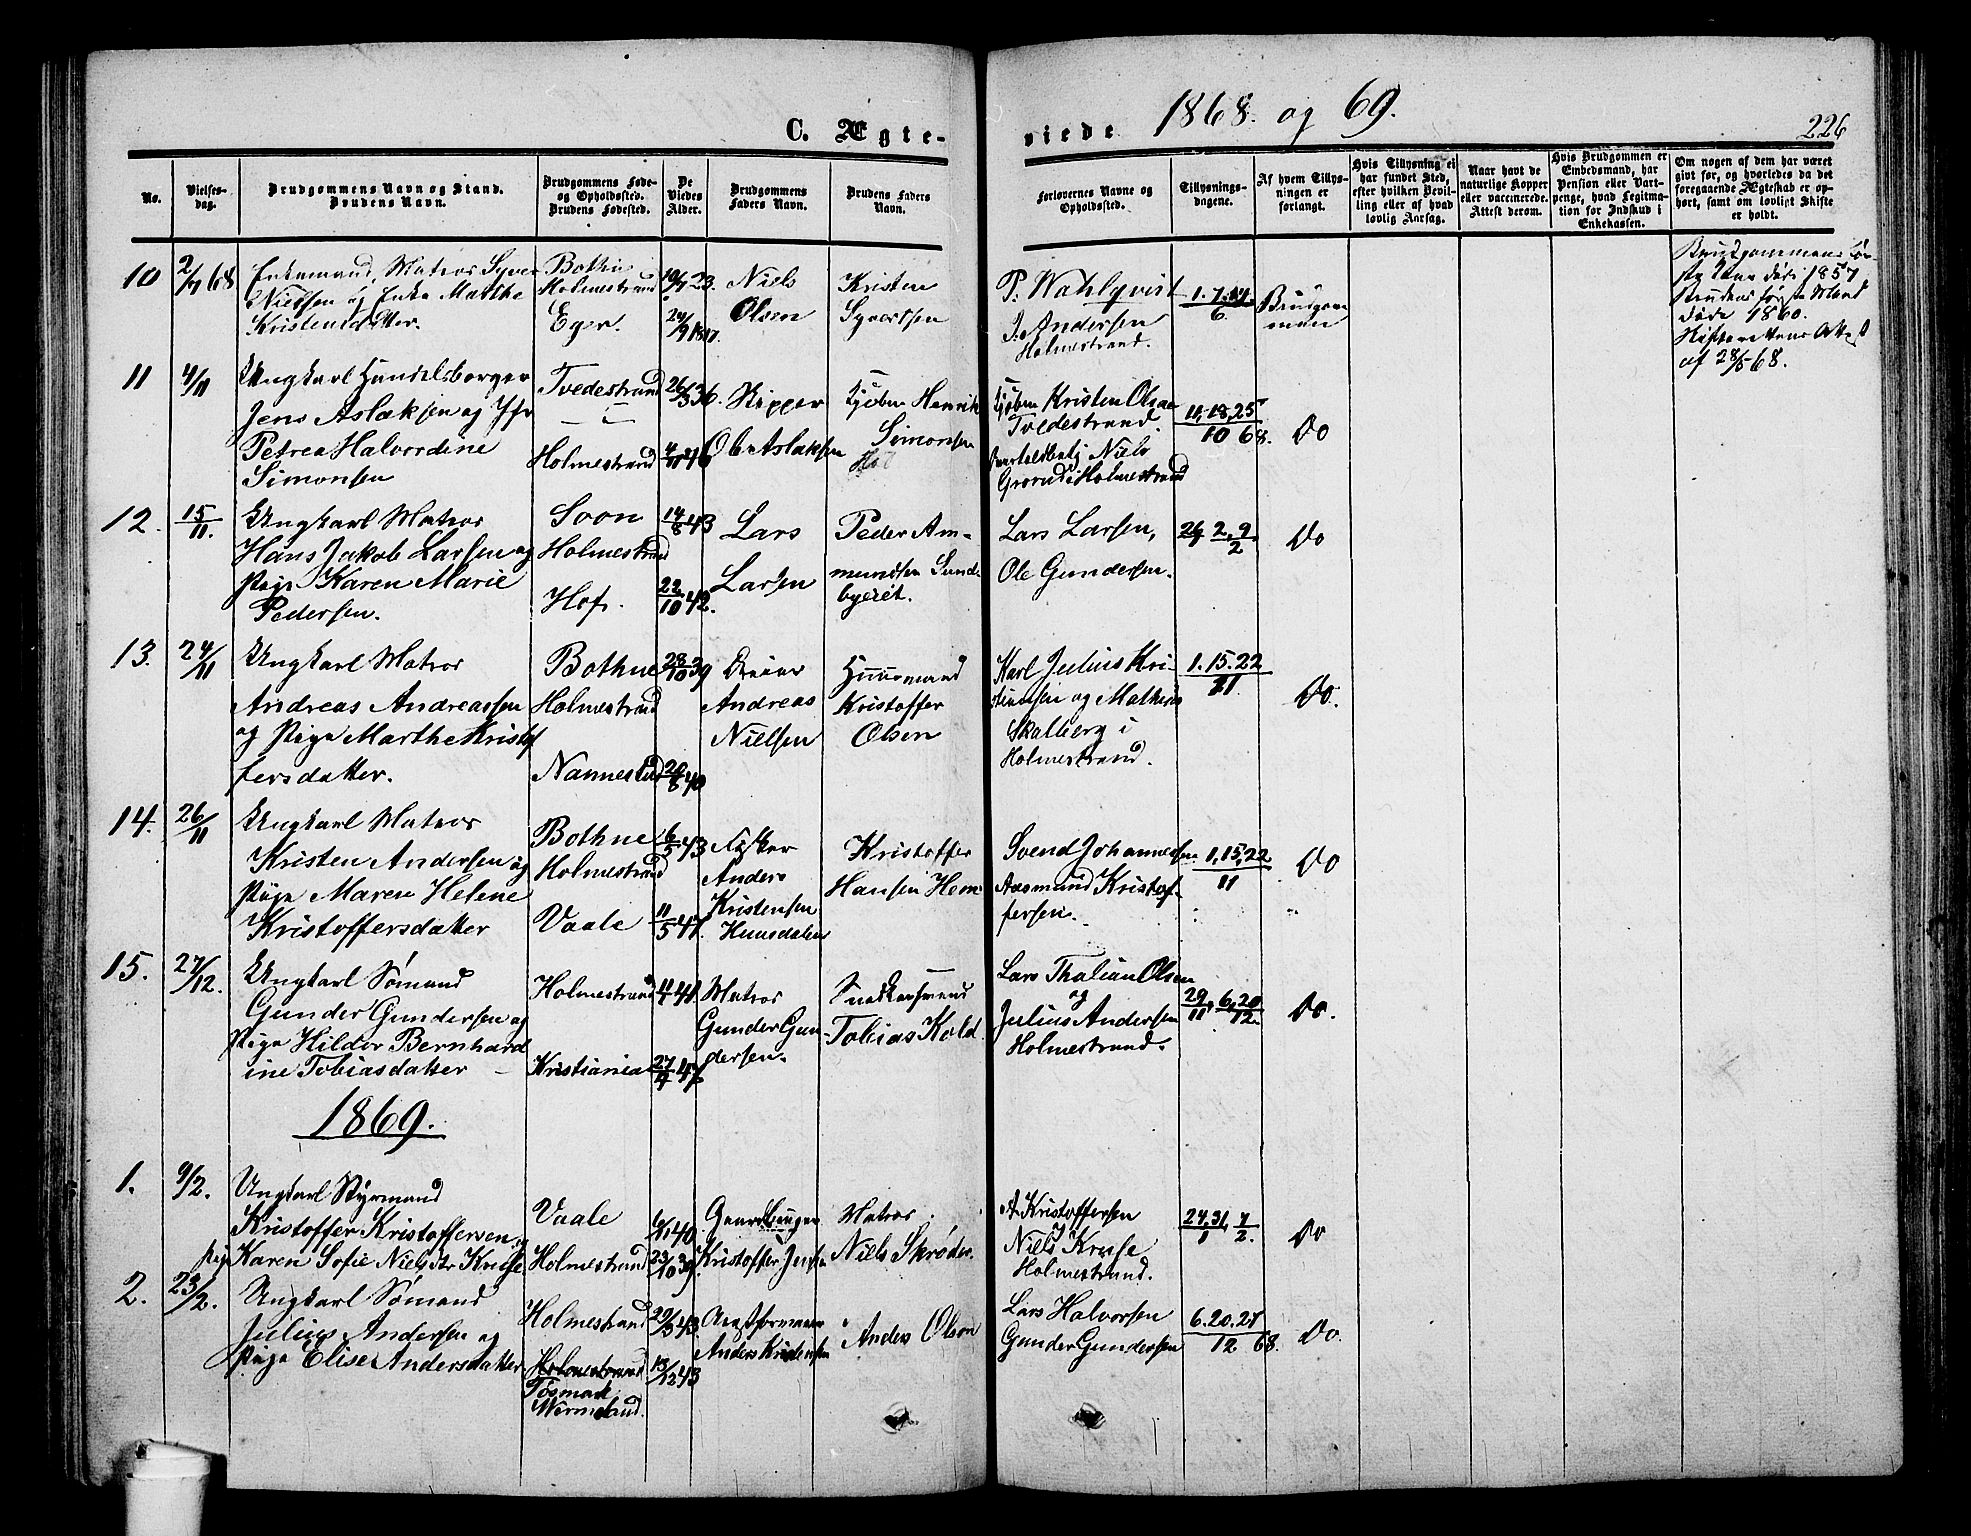 C. Ægte-
viede 1868. og 69.
226
No.
Vielses-
dag.
Brudgommens Navn og Stand.
Brudens Navn.
Brudgommens Føde-
og Opholdssted.
Brudens Fødested.
De
Viedes
Alder.
Brudgommens
Faders Navn.
Brudens Faders
Navn.
Forlovernes Navne og
Opholdssted.
Tillysnings-
dagene.
Af hvem Tillys-
ningen er
forlangt.
Hvis Tillysning ei
har fundet Sted,
efter hvilken Bevil-
ling eller af hvad
lovlig Aarsag.
Naar havt de
naturlige Kopper
eller vaccinerede.
Attest derom.
Hvis Brudgommen er
Embedsmand, har
Pension eller Vart-
penge, hvad Legitima-
tion for Indskud i
Enkekassen.
Om nogen af dem har været
gift før, og hvorledes da det
foregaaende Ægteskab er op-
hørt, samt om lovligt Skifte
er holdt.
10
Enkemand, Matros Syver
Nielsen og Enke Marthe
Kristensdatter.
Bothne
Holmestrand
Eger.
Niels
Olsen
Kristen
Syvertsen
P. Wahlqvist
J. Andersen
Holmestrand.
1. 7. 14
6.
Brudgom-
men
Brudgommens før-
ste Kone døde 1857
Brudens første Mand
døde 1860.
af 28/5 68.
11
4/11
Ungkarl Handelsborger
Jens Aslaksen og Jfr
Petrea Halvordine
Simonsen
Tvedestrand
Holmestrand
26/3 36
4/11 46
Skipper
Ole Aslaksen
Kjøbm Henrik
Simonsen
Kjøbm Kristen Olsen
Tvedestrand.
Niels
Grorud i Holmestrand
11. 18. 25
10 68.
Do
12.
15/11.
Ungkarl Matros
Hans Jakob Larsen og
Pige Karen Marie
Pedersen.
Soon
Holmestrand
Hof.
14/8 43
22/10 42.
Lars
Larsen
Peder Am-
mundsen Sund-
byeiet.
Lars Larsen,
Ole Gundersen.
26 2. 9
2
Do
13.
24/11
Ungkarl Matros
Andreas Andreassen
og Pige Marthe Kristof
fersdatter.
Bothne
Holmestrand
Nannestad
28/10 39
20/8 40
Andreas
Nielsen
Huusmand
Kristoffer
Olsen
Karl Julius Kri-
stensen og Mathias
Skalberg i
Holmestrand.
1. 15. 22
11.
Do.
14.
26/11
Ungkarl Matros
Kristen Andersen og
Pige Maren Helene
Kristoffersdatter
Bothne
Holmestrand
Vaale
6/5 43
11/5 47.
Fisker
Anders
Kristensen
Huusdalen
Kristoffer
Hansen Hem
Svend Johannesen
Aasmund Kristof-
fersen.
1. 15. 22
11
Do
15.
27/12.
Ungkarl Sømand
Gunder Gundersen og
Pige Hilder Bernhard
ine Tobiasdatter
Holmestrand
Kristiania
Matros
Gunder Gun-
dersen.
Tobias Kold
Lars Thalian Olsen
og
Julius Andersen
Holmestrand.
29/11. 6. 20/12.
Do.
1869.
1.
9/2.
Ungkarl Styrmand
Kristoffer Kristoffersen og
Pige Karen Sofie Nielsdtr Kruse.
Vaale
Holmestrand
6/1 40
23/10 39
Gaardbruger
Kristoffer Jensen
Matros
Niels Skrøder.
A. Kristoffersen
Niels J Kruse
Holmestrand.
24. 31/1 7/2.
Do
2.
23/2.
Ungkarl Sømand
Julius Andersen og
Pige Elise Andersdatter
Holmestrand
Holmestrand
Tøsmark
Wermeland.
29/3 43
13/12 43
Anders Kristensen
Anders Olson
Lars Halvorsen
Gunder Gundersen
6. 20. 27
12 68.
Do.